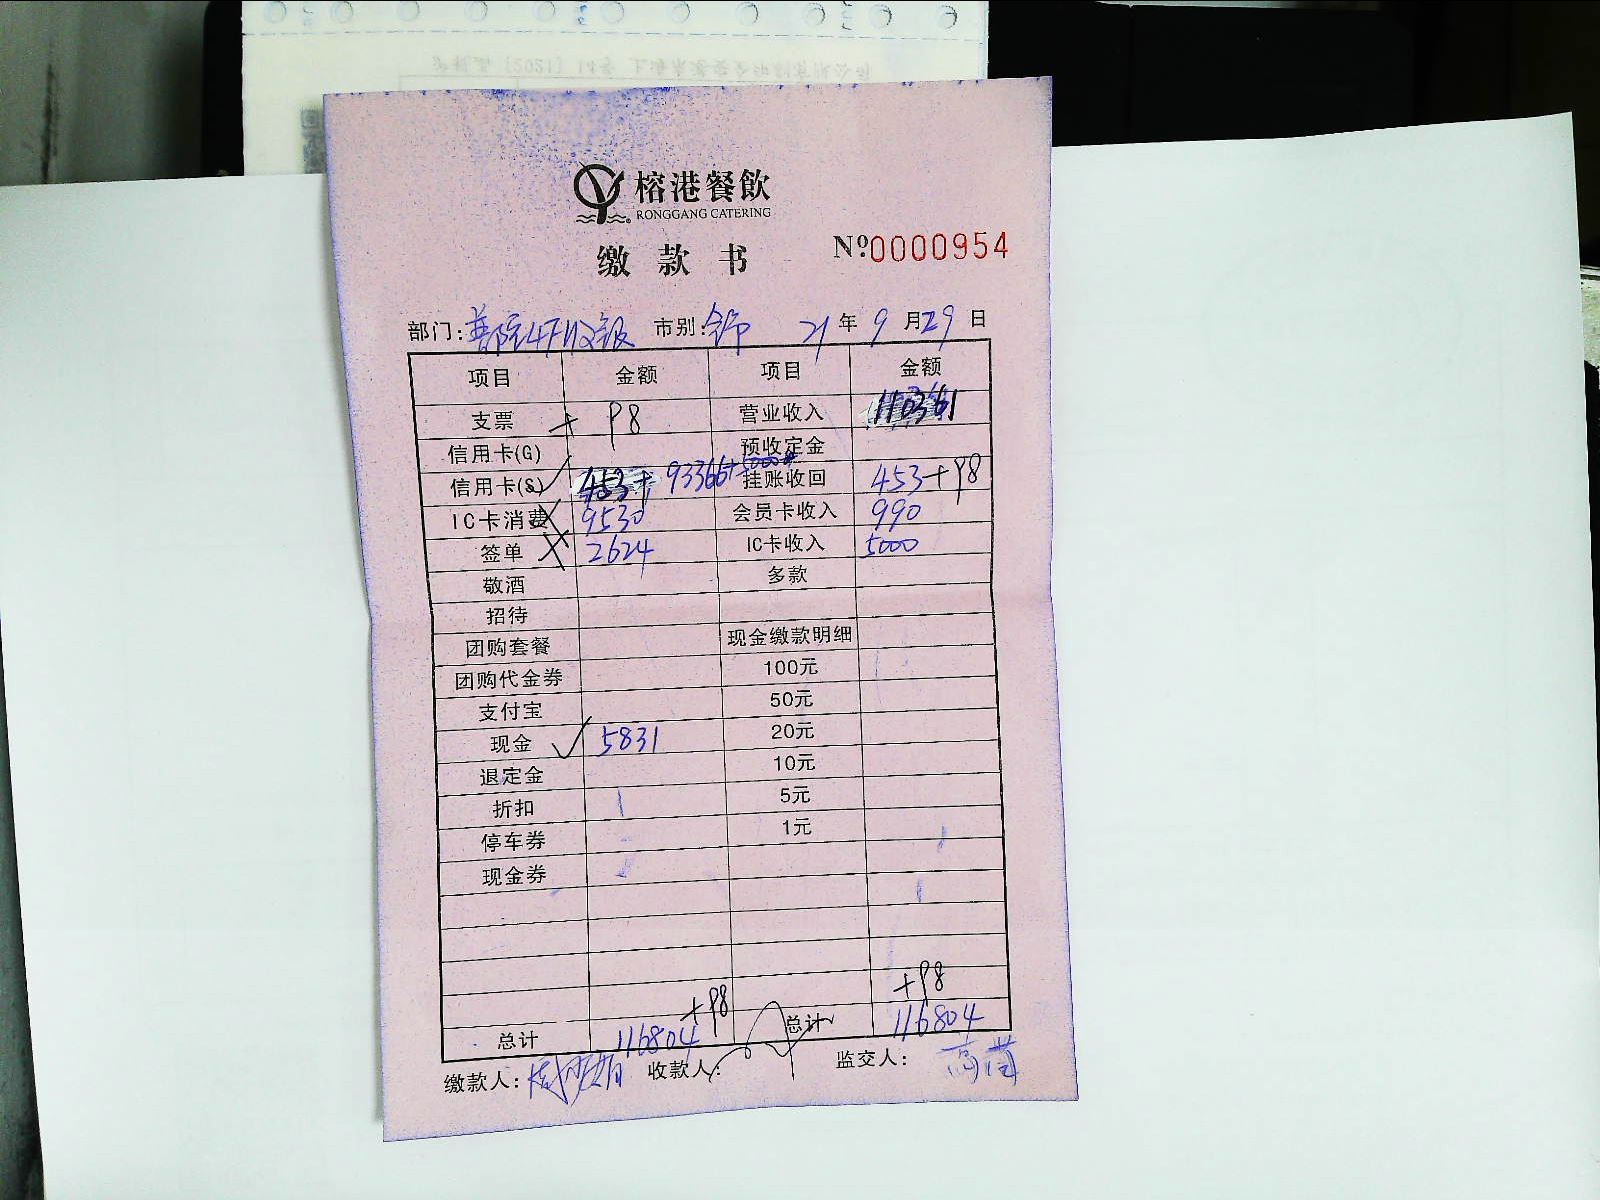 榕港餐飲
RONGGANG CATERING
缴款书
№0000954
部门:普陀4F收银 市别: 21年9月29日
项目 金额 项目 金额
支票 + 98 营业收入 110361
信用卡(G) 预收定金
信用卡(S) 453+ 93366+5000 挂账收回 453+98
IC卡消费 9530 会员卡收入 990
签单 2624 IC卡收入 5000
敬酒 多款
招待
团购套餐 现金缴款明细
团购代金券 100元
支付宝 50元
现金 5831 20元
退定金 10元
折扣 5元
停车券 1元
现金券
+98 +98
总计 116804 总计 116804
缴款人: 收款人: 监交人: